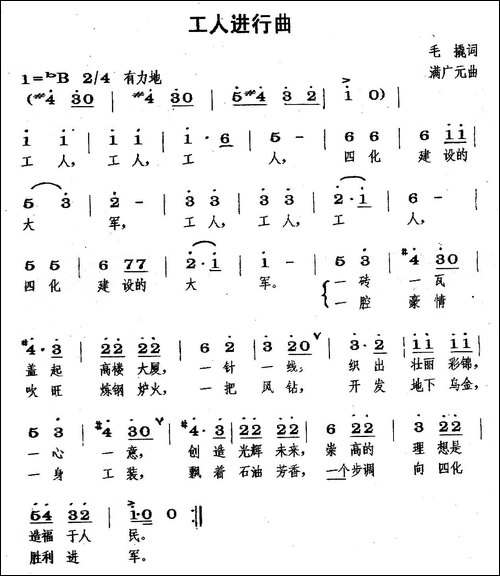 工人进行曲
毛 撬词
1=♭B 2/4 有力地 满广元曲
(#4 30 | #4 30 | 5#4 3 2 | i 0) |
i i | i i | i · 6 | 5 5 | 6 6 | 6 i i |
工 人, 工 人, 工 人, 四 化 建 设的
5 3 | 2 - | 3 3 | 3 3 | 2 · i | 6 - |
大 军, 工 人, 工 人, 工 人,
5 5 | 6 77 | 2 · i | i - | 5 3 | #4 30 |
四 化 建 设的 大 军。 一 砖 一 瓦
一 腔 豪 情
#4 · 3 | 22 22 | 6 2 | 3 20 V | 3 · 2 | i i i i |
盖 起 高楼 大厦, 一 针 一 线, 织 出 壮丽 彩锦,
吹 旺 炼钢 炉火, 一 把 风 钻, 开 发 地下 乌金,
5 3 | #4 30 V | #4 · 3 | 22 22 | 6 22 | 3 22 |
一 心 一 意, 创 造 光辉 未来, 崇 高的 理 想是
一 身 工 装, 飘 着 石油 芳香, 一个 步调 向 四化
54 32 | i·0 0 :||
造福 于人 民。
胜利 进 军。